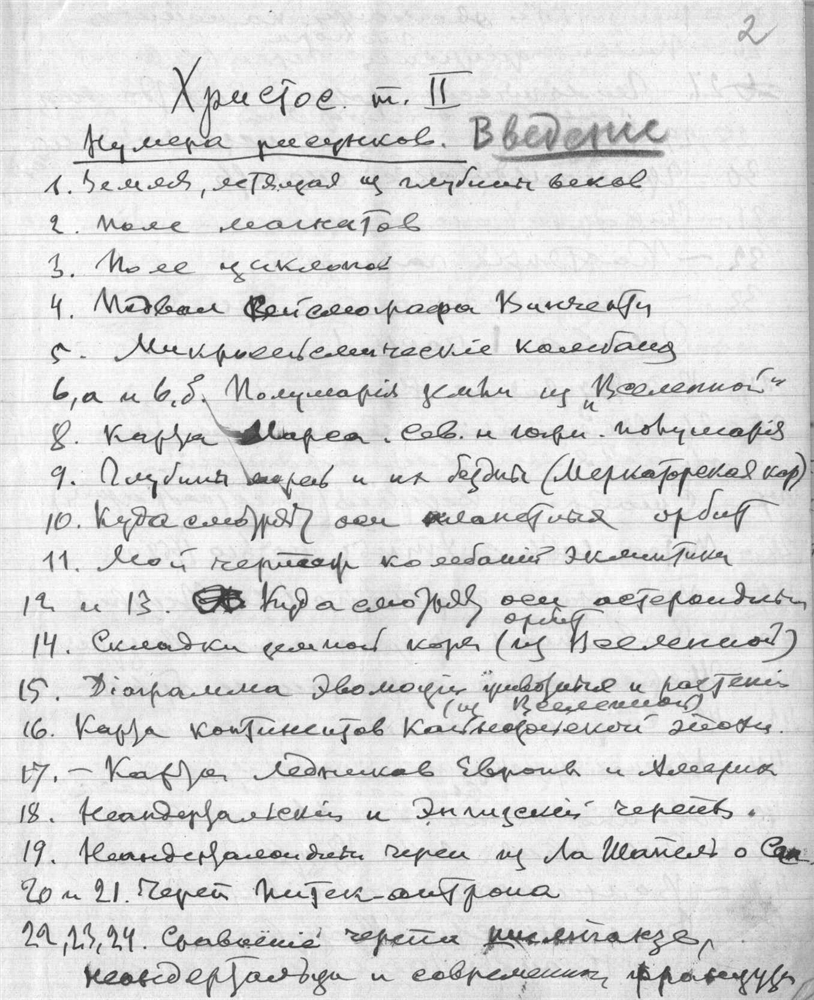 2
Христос. т. II
Нумера рисунков. Введение
1. Земля, летящая из глубины веков
2. Поле магнатов
3. Поле циклопов
4. Подвал Сейсмографа Винченти
5. Микросейсмическіе колебания
6,а и 6,б. Полушарія земли из „Вселенной"
8. Карта Марса. Сев. и южн. полушарія
9. Глубины морей и их бездны (Меркаторская кар)
10. Куда смотрят оси планетных орбит
11. Мой чертеж колебаній эклиптики
12 и 13 Куда смотрят оси астероидных
орбит
14. Складки земной коры (из Вселенной)
15. Діаграмма Эволюціи животных и растеній
(из Вселенной)
16. Карта континентов Кайнозойской эпохи.
17. – Карта ледников Европы и Америки
18. Неандертальскій и Энгисскій черепъ.
19. Неандерталоидный череп из Ла Шапель о Сен
20 и 21. Череп Питек-антропа
22, 23, 24. Сравненіе черепа шимпанзе,
неандертальца и современнаго француза